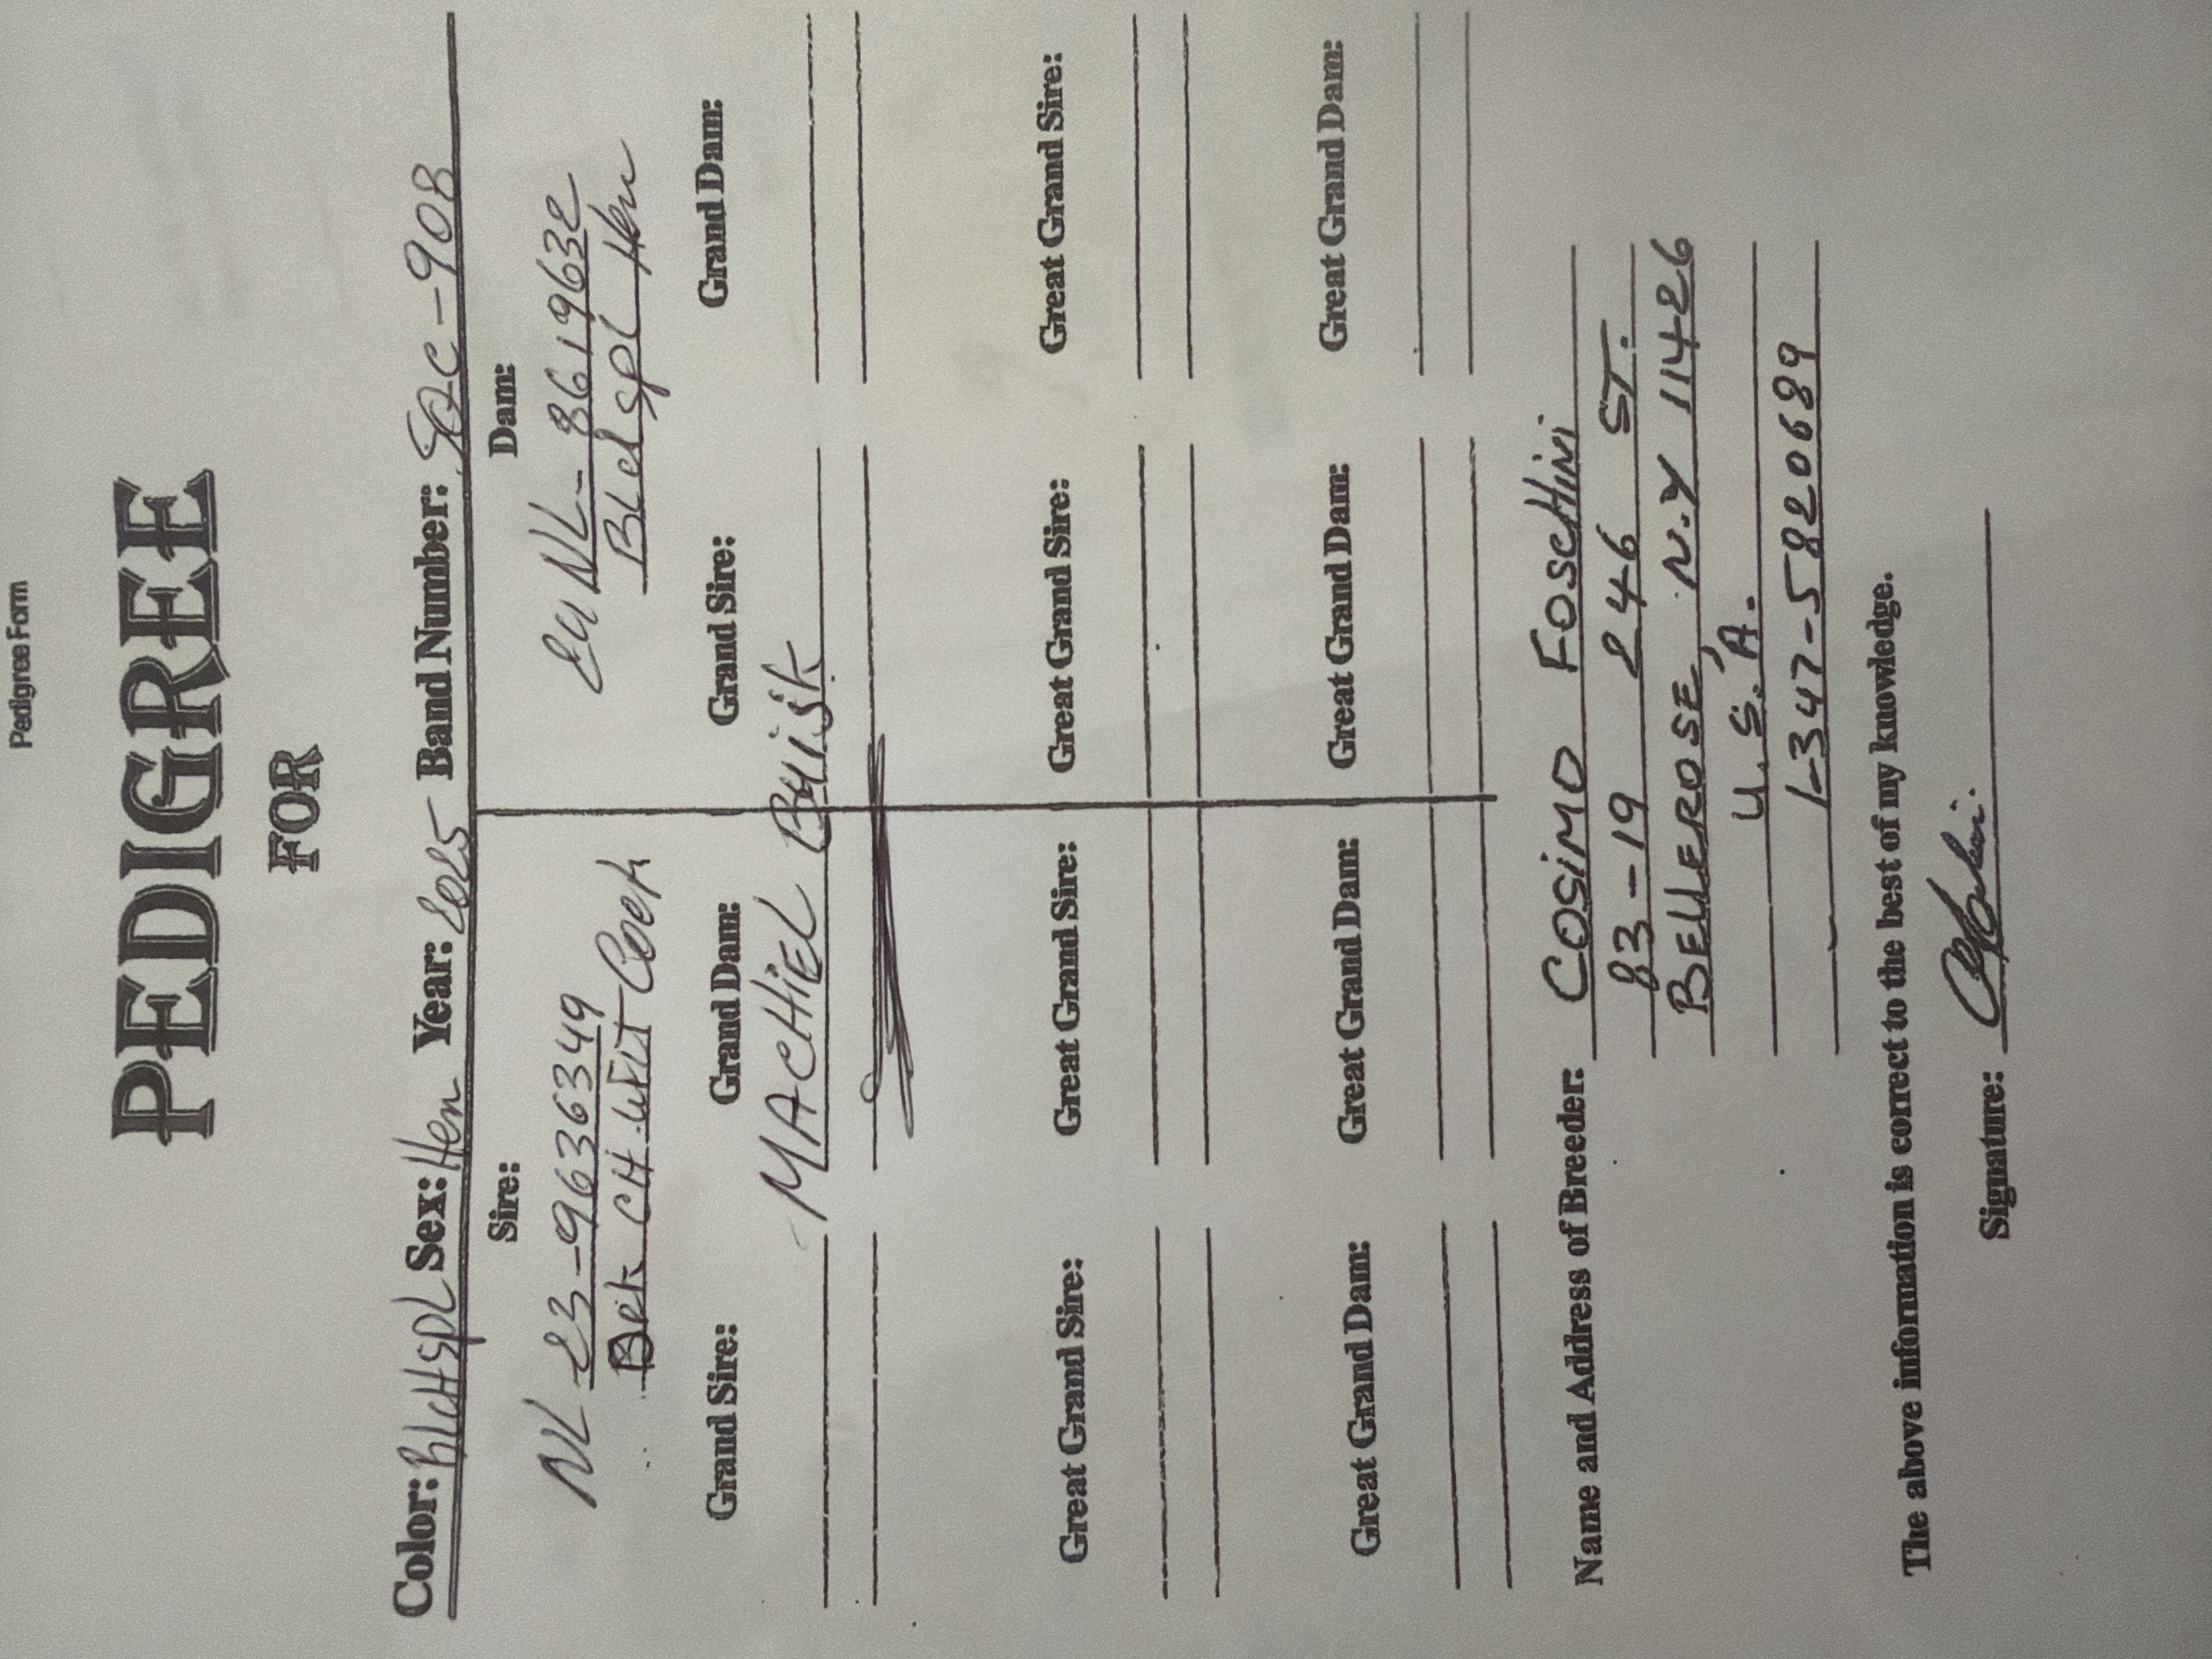 Pedigree Form
PEDIGREE
FOR
Color: BlCHSPL Sex: Hen Year: 2025 Band Number: SQC-908
Sire: Dam:
NL 23-9636349 EU NL-8619632
CH WFLT Cock Blck SPL Hen
Grand Sire: Grand Dam: Grand Sire: Grand Dam:
MACHIEL Buijk
Great Grand Sire: Great Grand Sire: Great Grand Sire: Great Grand Sire:
Great Grand Dam: Great Grand Dam: Great Grand Dam: Great Grand Dam:
Name and Address of Breeder: COSIMO FOSCHINI
83-19 246 ST.
BELLEROSE, N.Y 11426
U.S.A.
1-347-5820689
The above information is correct to the best of my knowledge.
Signature: